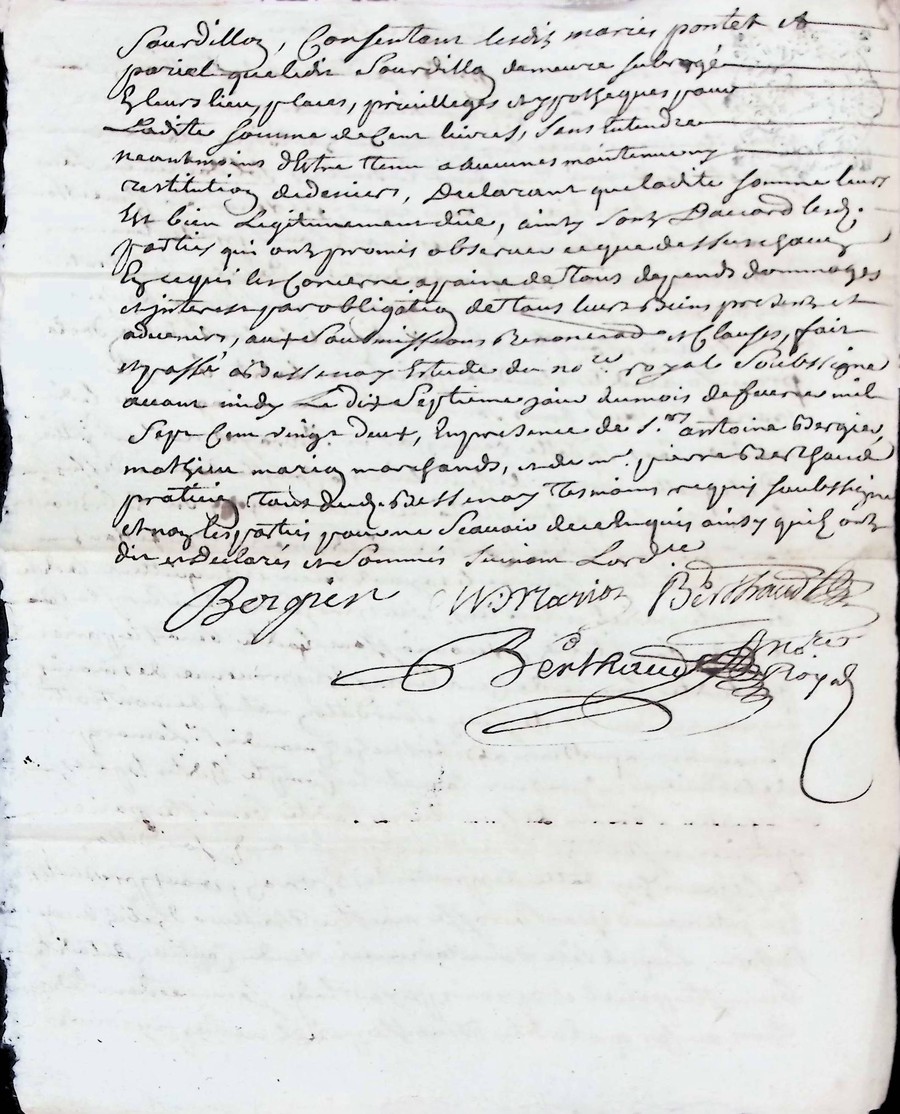 Sourdillon, Consentant lesdits mariés pontet et
pariel que ledit Sourdillon demeure subrogé
En leurs lieu, places, privilleges et ypotheques pour
Ladite somme de Cent livres, sans Entendre
neantmoins d'Estre tenu a aucunes maintenue ny
restitution de deniers, Declarant que ladite somme leurs
Est bien Legitimement düe, ainsy sont Daccord lesd.
parties qui ont promis observer ce que dessus chacun
En ce qui les Concerne a paine de tous depends dommages
et interest par obligation de tous leurs Biens presents et
advenirs, aux Soubmissions Renonciaõ et Clauses, fait
et passé a Bessenay Estude du nore. royal Soubssigne
avant midy Le dix Septieme jour du mois de feuvrie mil
Sept Cent vingt deux, En presence de Srs. antoine Bergier,
mathieu marion marchands, et de mr. pierre Berthaud
praticien tous dud. Bessenay tesmoins requis soubssigne
et non les parties pour ne Scavoir de ce enquis ainsy quils ont
dit et Declarés et Sommés Suivant Lordre
Bergier M. Marion Berthaud
Berthaud nore
Royal